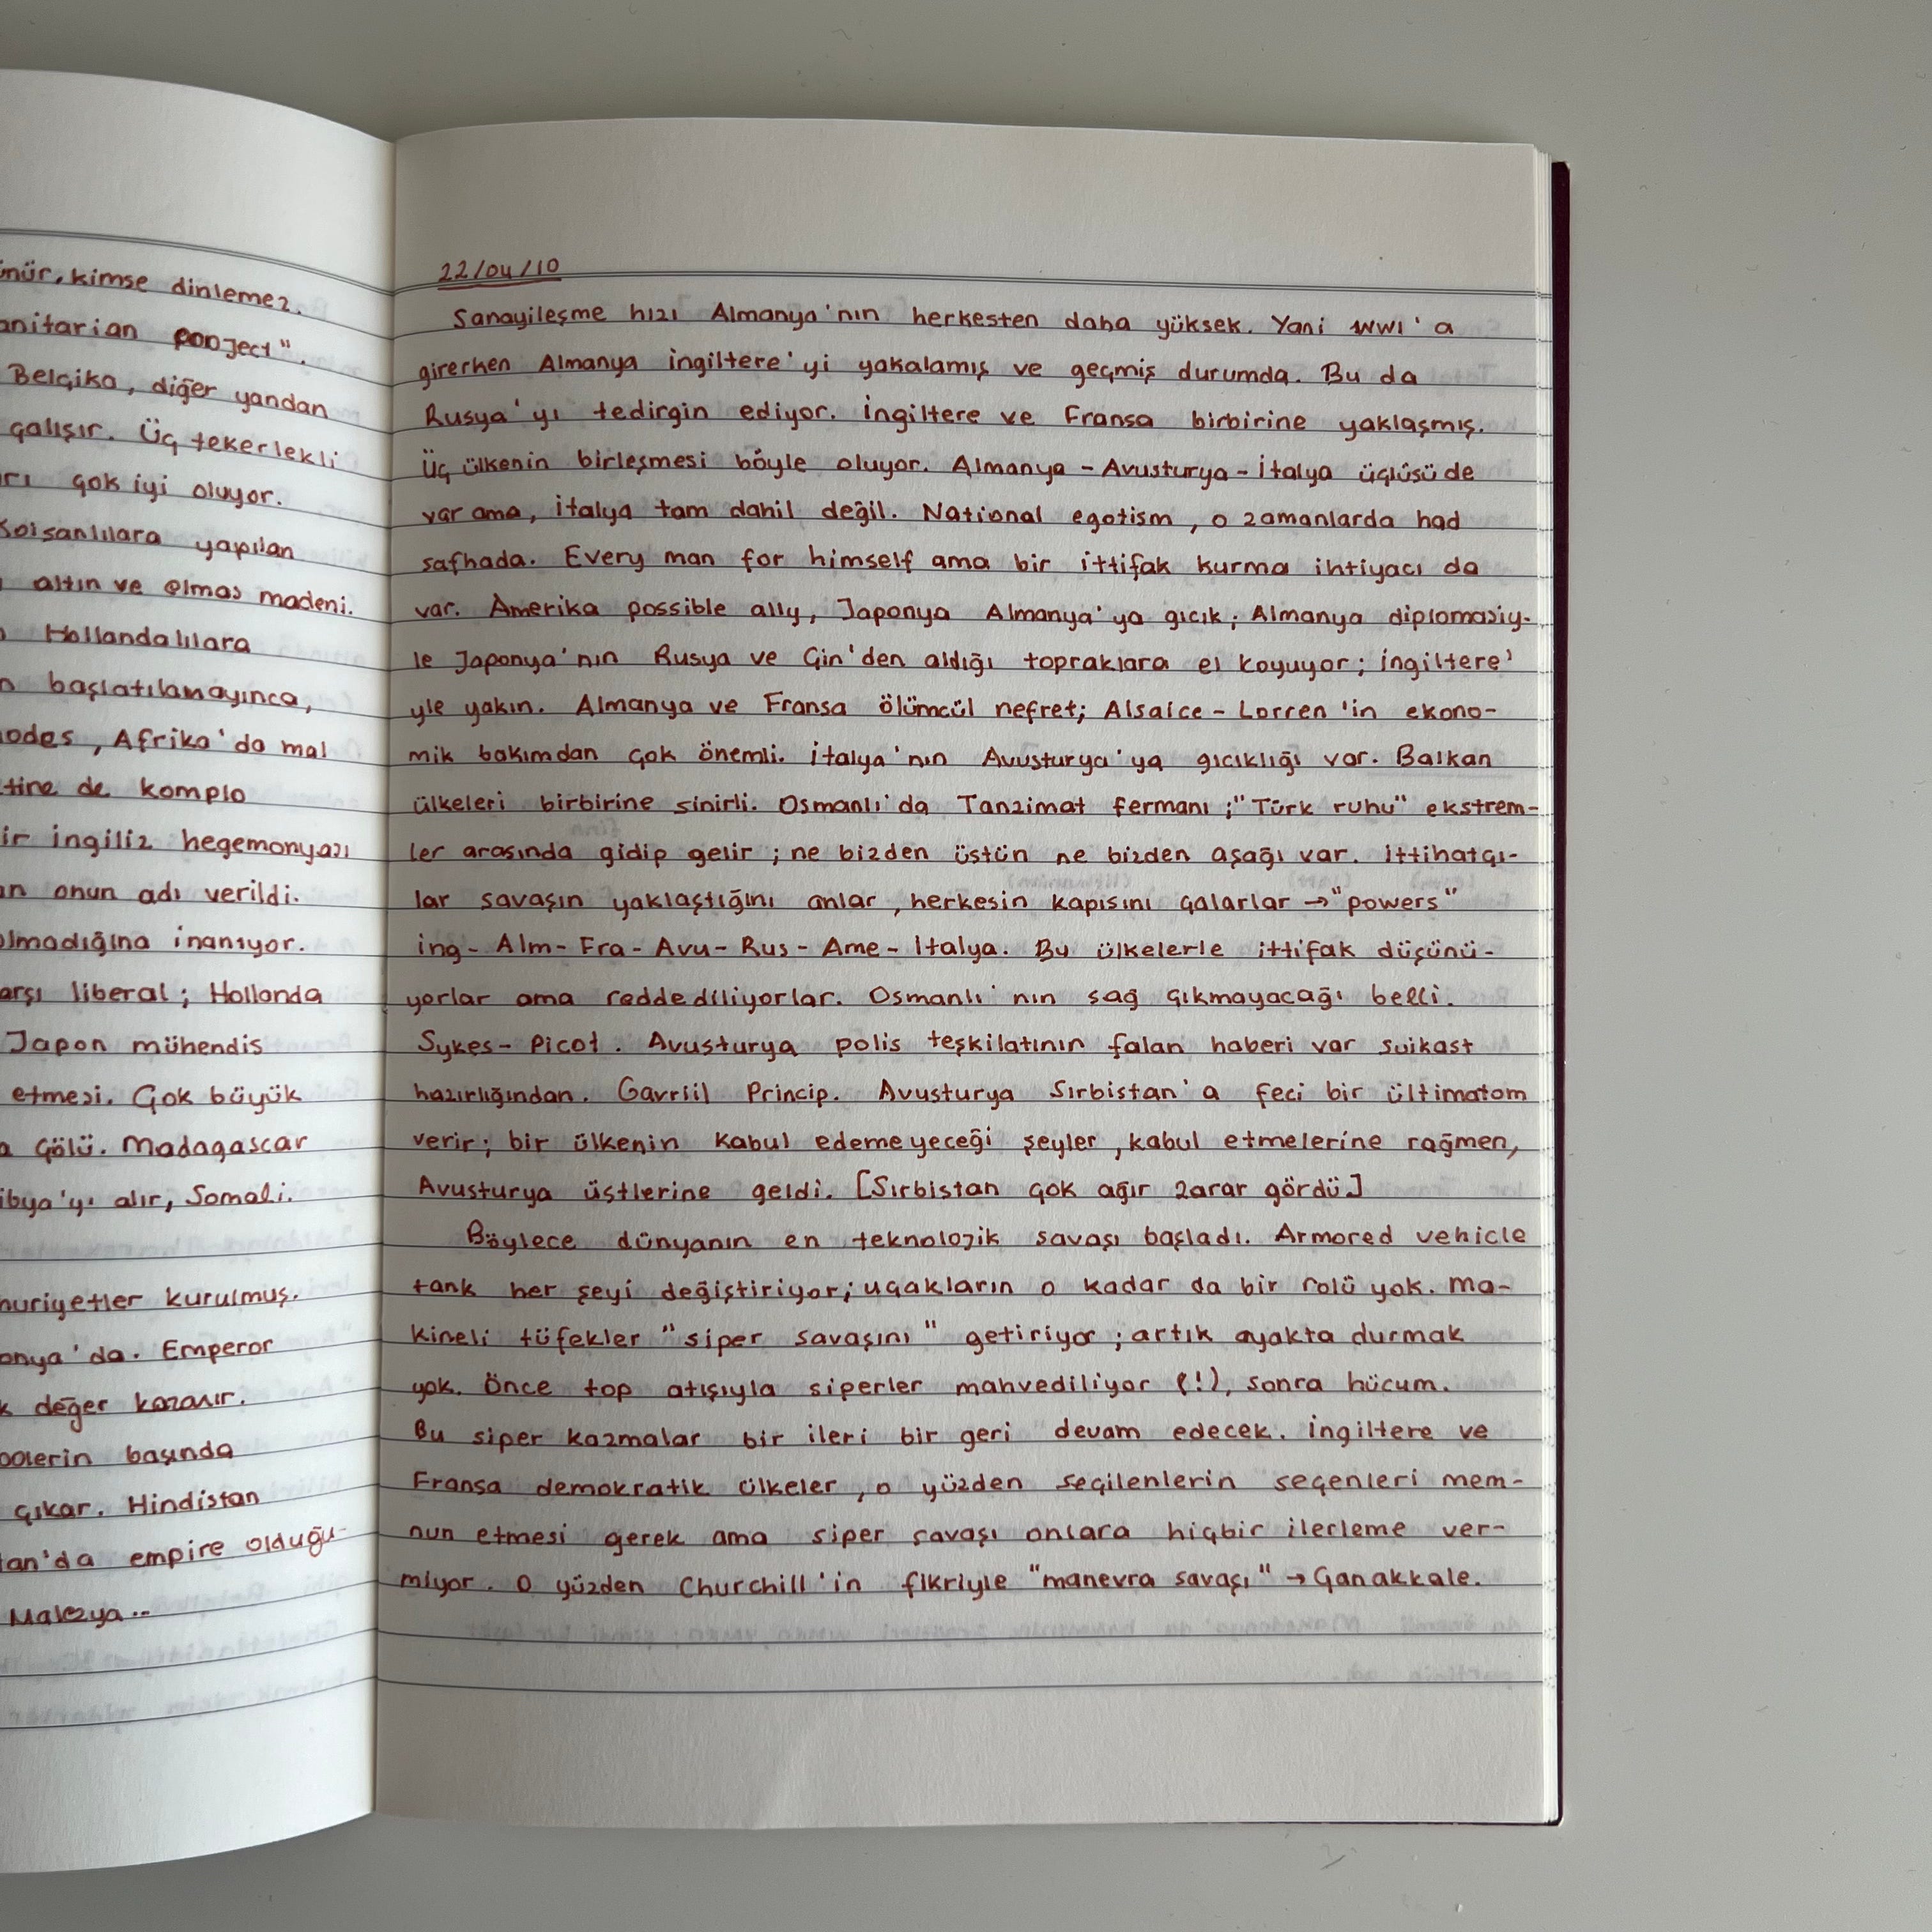 nür, kimse dinlemez.
anitarian project".
Belçika, diğer yandan
çalışır. Üç tekerlekli
rı çok iyi oluyor.
Koisanlılara yapılan
altın ve elmas madeni.
Hollandalılara
başlatılamayınca,
odes, Afrika'da mal
tine de komplo
ir ingiliz hegemonyası
an onun adı verildi.
olmadığına inanıyor.
arşı liberal; Hollanda
Japon mühendis
etmesi. Çok büyük
a Gölü. Madagascar
ibya'yı alır, Somali.
huriyetler kurulmuş.
onya'da. Emperor
k değer kazanır.
polerin başında
çıkar. Hindistan
tan'da empire olduğu-
Malezya..
22/04/10
Sanayileşme hızı Almanya'nın herkesten daha yüksek. Yani WWI'a
girerken Almanya ingiltere'yi yakalamış ve geçmiş durumda. Bu da
Rusya'yı tedirgin ediyor. İngiltere ve Fransa birbirine yaklaşmış.
Üç ülkenin birleşmesi böyle oluyor. Almanya - Avusturya - İtalya üçlüsü de
var ama, italya tam dahil değil. National egotism, o zamanlarda had
safhada. Every man for himself ama bir ittifak kurma ihtiyacı da
var. Amerika possible ally, Japonya Almanya'ya gıcık; Almanya diplomasiy-
le Japonya'nın Rusya ve Çin'den aldığı topraklara el koyuyor; ingiltere'
yle yakın. Almanya ve Fransa ölümcül nefret; Alsaice - Lorren'in ekono-
mik bakımdan çok önemli. italya'nın Avusturya'ya gıcıklığı var. Balkan
ülkeleri birbirine sinirli. Osmanlı'da Tanzimat fermanı; "Türk ruhu" ekstrem-
ler arasında gidip gelir; ne bizden üstün ne bizden aşağı var. ittihatçı-
lar savaşın yaklaştığını anlar, herkesin kapısını çalarlar → "powers"
ing - Alm - Fra - Avu - Rus - Ame - Italya. Bu ülkelerle ittifak düşünü-
yorlar ama reddediliyorlar. Osmanlı'nın sağ çıkmayacağı belli.
Sykes - Picot. Avusturya polis teşkilatının falan haberi var suikast
hazırlığından. Gavriil Princip. Avusturya Sırbistan'a feci bir ültimatom
verir; bir ülkenin kabul edemeyeceği şeyler, kabul etmelerine rağmen,
Avusturya üstlerine geldi. [Sırbistan çok ağır zarar gördü.]
Böylece dünyanın en teknolojik savaşı başladı. Armored vehicle
tank her şeyi değiştiriyor; uçakların o kadar da bir rolü yok. Ma-
kineli tüfekler "siper savaşını" getiriyor; artık ayakta durmak
yok. Önce top atışıyla siperler mahvediliyor (!), sonra hücum.
Bu siper kazmalar bir ileri bir geri devam edecek. İngiltere ve
Fransa demokratik ülkeler, o yüzden seçilenlerin seçenleri mem-
nun etmesi gerek ama siper savaşı onlara hiçbir ilerleme ver-
miyor. O yüzden Churchill'in fikriyle "manevra savaşı" → Çanakkale.